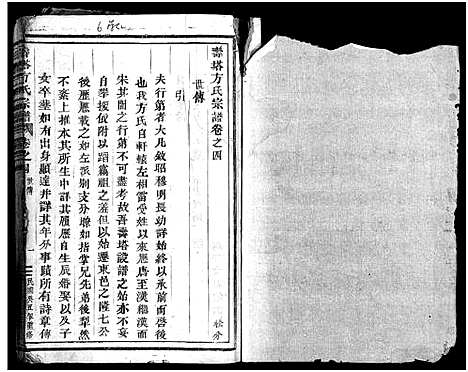 壽塔方氏宗譜卷之四
世傳
引
夫行第者大凡敘昭穆明長幼詳始終以承前而啓後
也我方氏自軒轅左相雷受姓以來歷唐至漢繼漢而
宋其間之行第不可盡考故吾壽塔設譜之始亦不妄
自攀援附以踏冐之羞但以始遷東邑之隆七公
後歷歷載之如左派別支分增長如指掌兄先弟後犁然
不紊於上推本其所生中詳其歷歷自生辰婚娶以及子
女卒葬如有出身顯達并詳其年分事蹟所有詩章傳
壽塔方氏宗譜
卷之四 世傳
一
松分